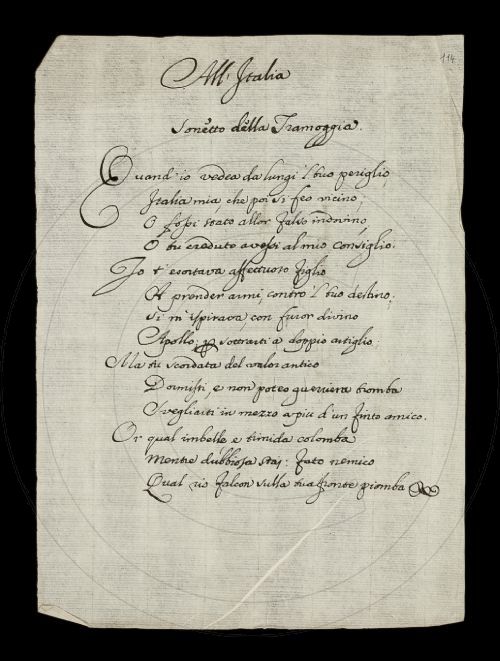 114
All' Italia
Sonetto della Tramoggia.
Quand' io vedea da lungi 'l tuo periglio
Italia mia, che poi si feo vicino;
O fossi stato allor falso indovino,
O tu creduto avessi al mio consiglio.
Io t' esortava affettuoso figlio
A prender armi, contro 'l tuo destino;
Si m' ispirava, con furor divino
Apollo; sottrarti a doppio artiglio:
Ma tu scordata del valor antico
Dormisti, e non poteo guerriera tromba
Svegliarti in mezzo a piu d' un finto amico.
Or qual imbelle e timida colomba
Mentre dubbiosa stai; fato nemico
Qual rio falcon sulla tua fronte piomba